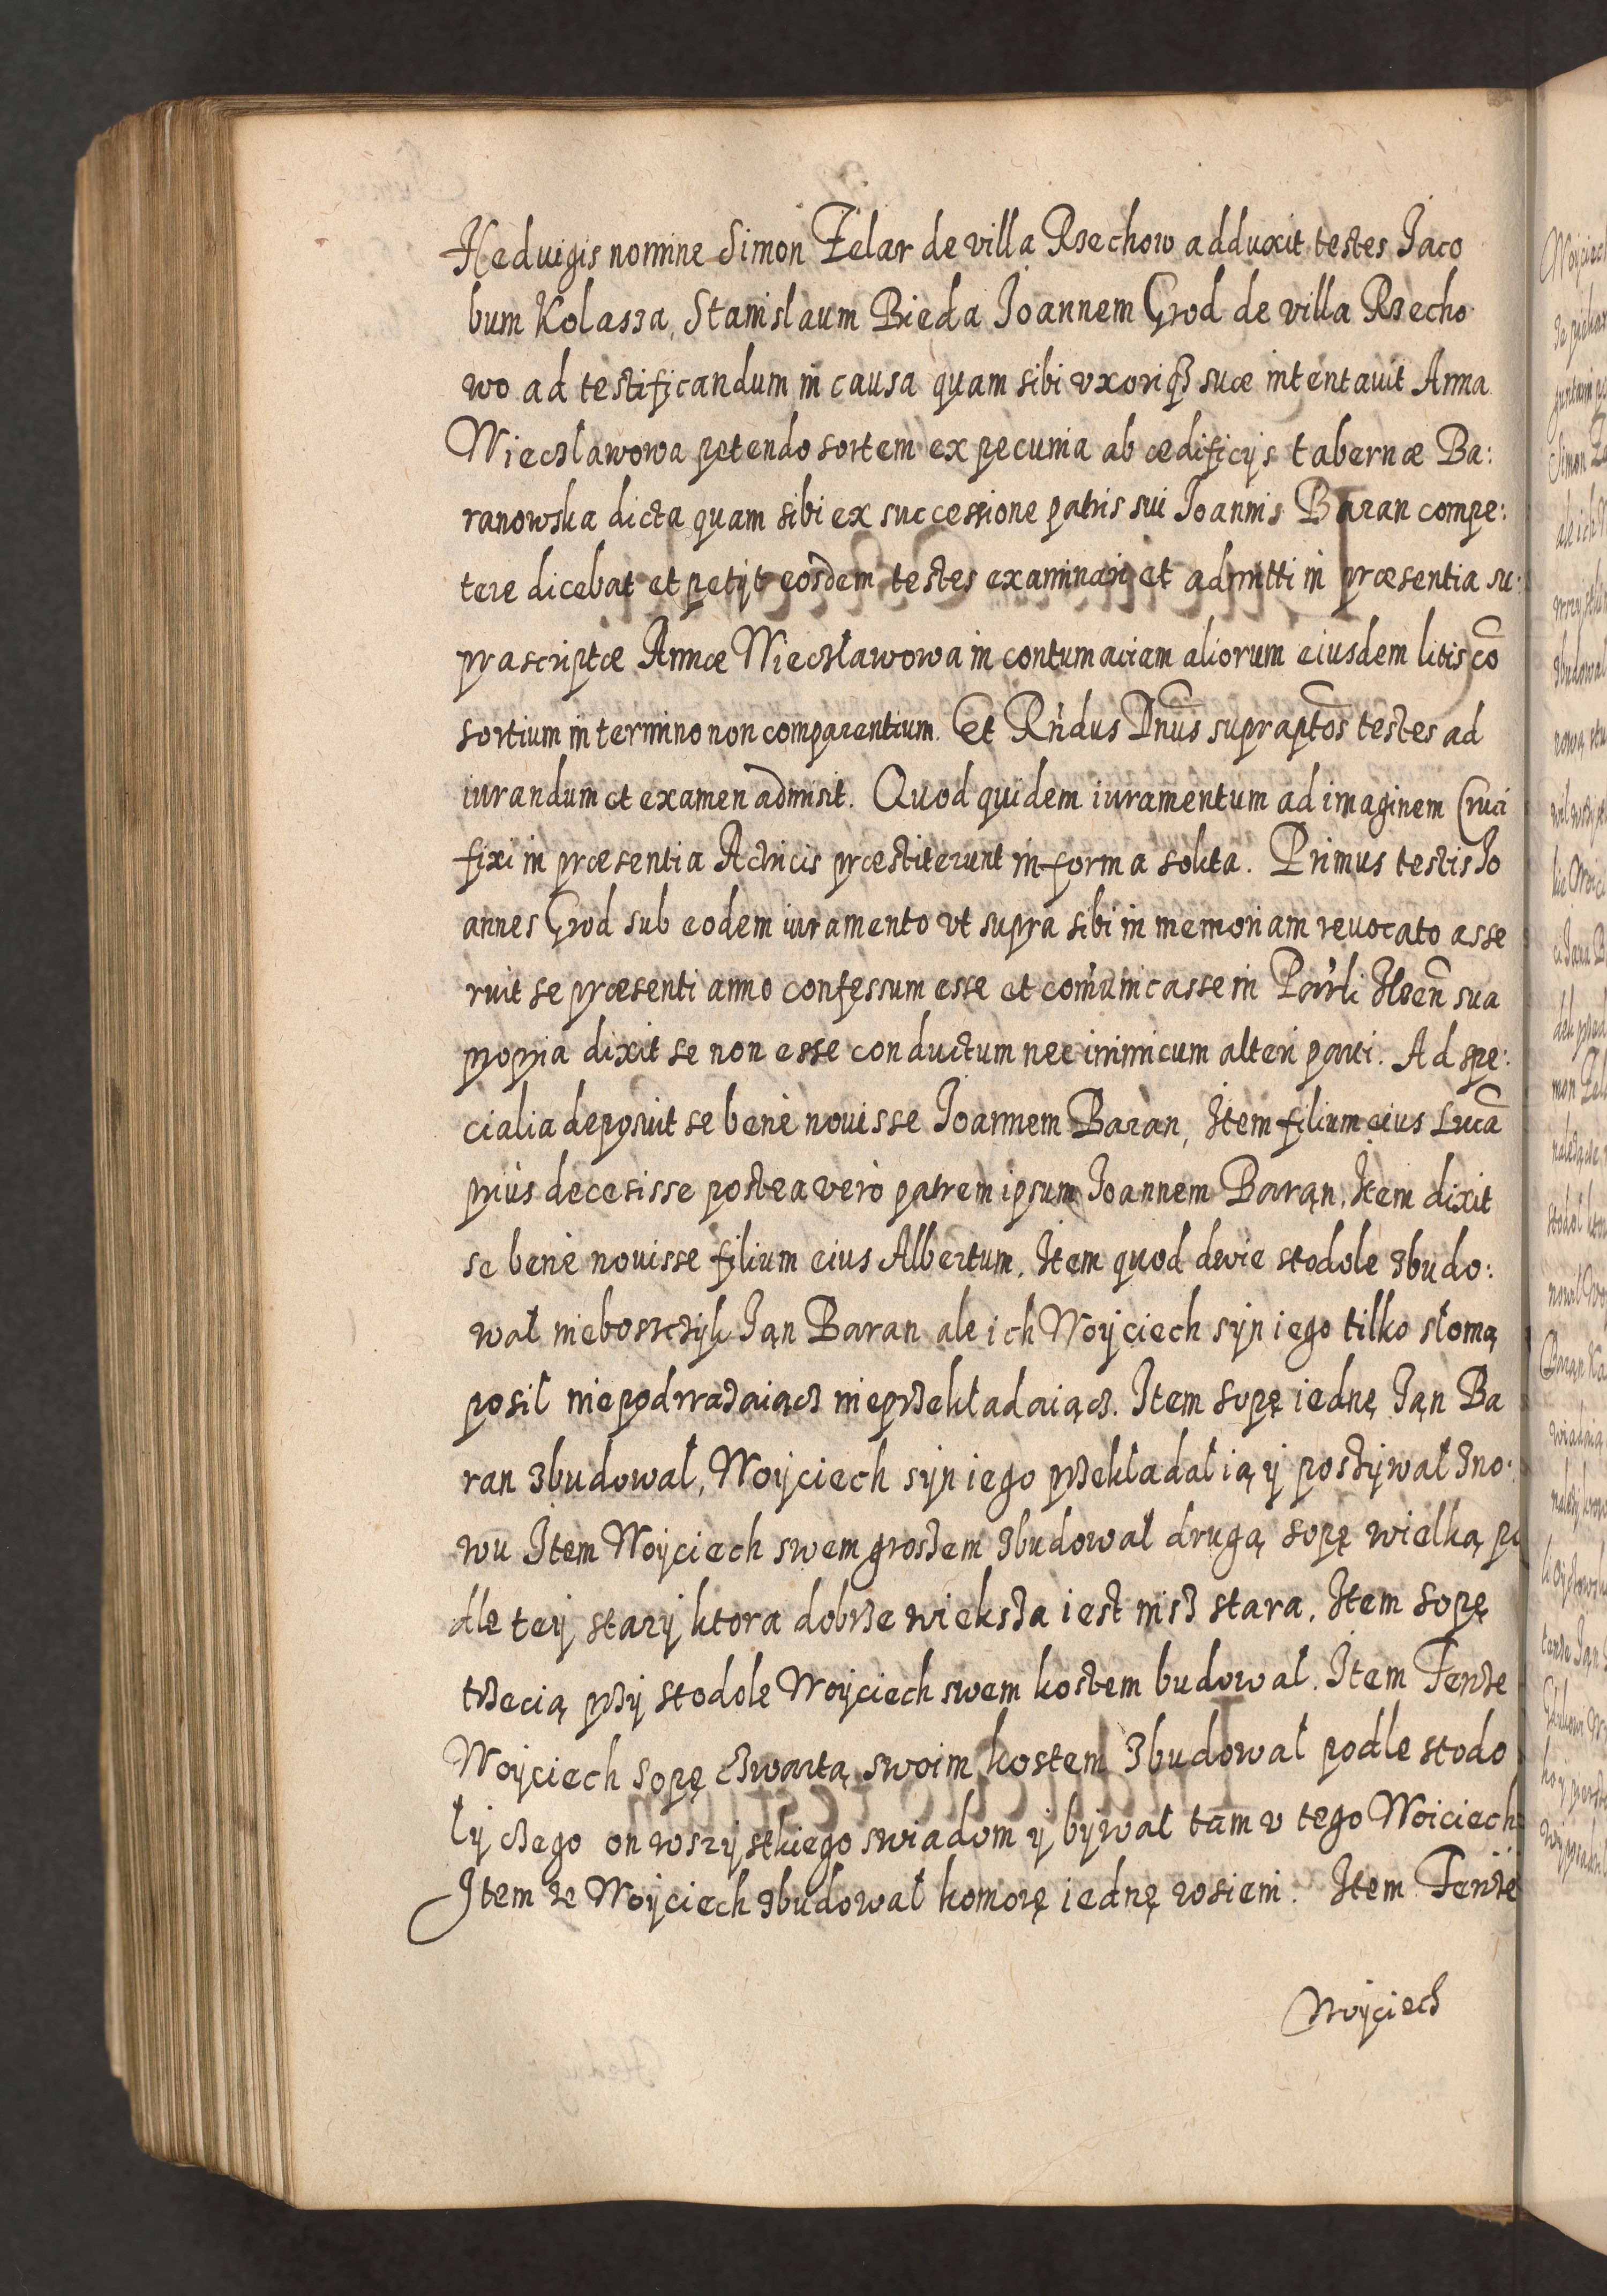 Heduigis nomine Simon Zelar de villa Rzechow adduxit testes Jaco
bum Kolassa, Stanislaum Bieda Joannem Grod de villa Rzecho
wo ad testificandum in causa quam sibi vxoriqз suæ intentauit Anna
Wieczlawowa petendo sortem ex pecunia ab ædificijs tabernæ Ba:
ranowska dicta quam sibi ex successione patris sui Joannis Baran compe:
tere dicebat et petijt eosdem testes examinari et admitti in præsentia su:
prascriptæ Annæ Wieczławowa in contumaciam aliorum eiusdem litis cō
sortium in termino non comparentium. Et Rndus Dnus supraptos testes ad
iurandum et examen admisit. Quod quidem iuramentum ad imaginem Cruci
fixi in præsentia Actricis præstiterunt in forma solita. Primus testis Jo
annes Grod sub eodem iuramento vt supra sibi in memoriam reuocato asse
ruit se præsenti anno confessum esse et comunicasse in sua
propria dixit se non esse conductum nec inimicum alteri parti. Ad spe:
cialia deposuit se benè nouisse Joannem Baran, Item filium eius Lucā
prius decesisse postea verò patrem ipsum Joannem Barąn. Item dixit
se benè nouisse filium eius Albertum. Item quod dwie stodole zbudo:
wał nieboszczyk Jąn Baran ale ich Woyciech syn iego tilko słomą
posił niepodwazaiącz nieprzekładaiącz. Item sopę iednę Jąn Ba
ran zbudował, Woyciech syn iego przekładał ią y poszywał zno:
wu Item Woyciech swem groszem zbudował drugą sopę wielką po
dle tey stary ktora dobrze wieksza iest nisz stara. Item sopę
trzecią przy stodole Woyciech swem kostem budował. Item Tenze
Woyciech sopę czwartą swoim kostem zbudował podle stodo
ły czego on wszystkiego swiadom y bywał tam v tego Woiciecha
Item ze Woyciech zbudował komorę iednę wsieni. Item Tenze
Woyciech